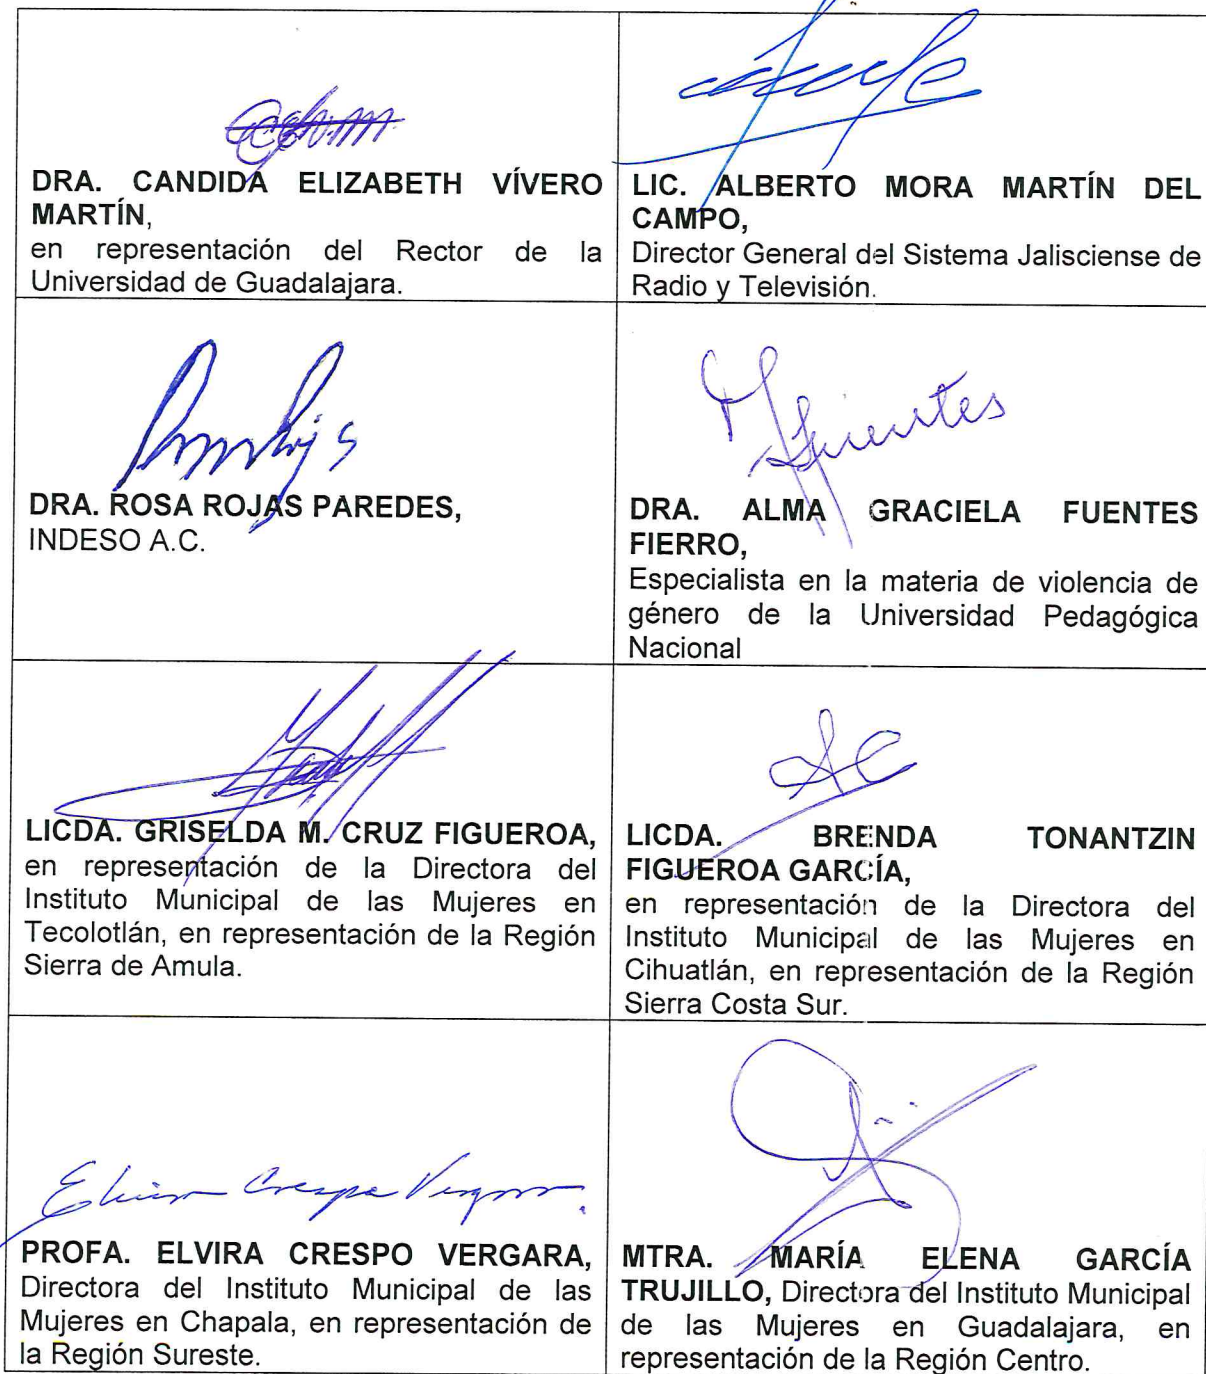 DRA. CANDIDA ELIZABETH VÍVERO
MARTÍN,
en representación del Rector de la
Universidad de Guadalajara.
LIC. ALBERTO MORA MARTÍN DEL
CAMPO,
Director General del Sistema Jalisciense de
Radio y Televisión.
DRA. ROSA ROJAS PAREDES,
INDESO A.C.
Fuentes
DRA. ALMA GRACIELA FUENTES
FIERRO,
Especialista en la materia de violencia de
género de la Universidad Pedagógica
Nacional
LICDA. GRISELDA M. CRUZ FIGUEROA,
en representación de la Directora del
Instituto Municipal de las Mujeres en
Tecolotlán, en representación de la Región
Sierra de Amula.
LICDA. BRENDA TONANTZIN
FIGUEROA GARCÍA,
en representación de la Directora del
Instituto Municipal de las Mujeres en
Cihuatlán, en representación de la Región
Sierra Costa Sur.
Elvira Crespo Vergara
PROFA. ELVIRA CRESPO VERGARA,
Directora del Instituto Municipal de las
Mujeres en Chapala, en representación de
la Región Sureste.
MTRA. MARÍA ELENA GARCÍA
TRUJILLO, Directora del Instituto Municipal
de las Mujeres en Guadalajara, en
representación de la Región Centro.